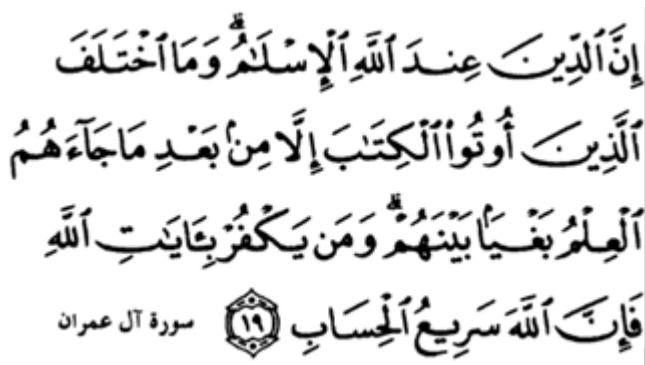 إِنَّ ٱلدِّينَ عِندَ ٱللَّهِ ٱلْإِسْلَٰمُ ۗ وَمَا ٱخْتَلَفَ
ٱلَّذِينَ أُوتُوا۟ ٱلْكِتَٰبَ إِلَّا مِنۢ بَعْدِ مَا جَآءَهُمُ
ٱلْعِلْمُ بَغْيًۢا بَيْنَهُمْ ۗ وَمَن يَكْفُرْ بِـَٔايَٰتِ ٱللَّهِ
فَإِنَّ ٱللَّهَ سَرِيعُ ٱلْحِسَابِ ١٩ سورة آل عمران